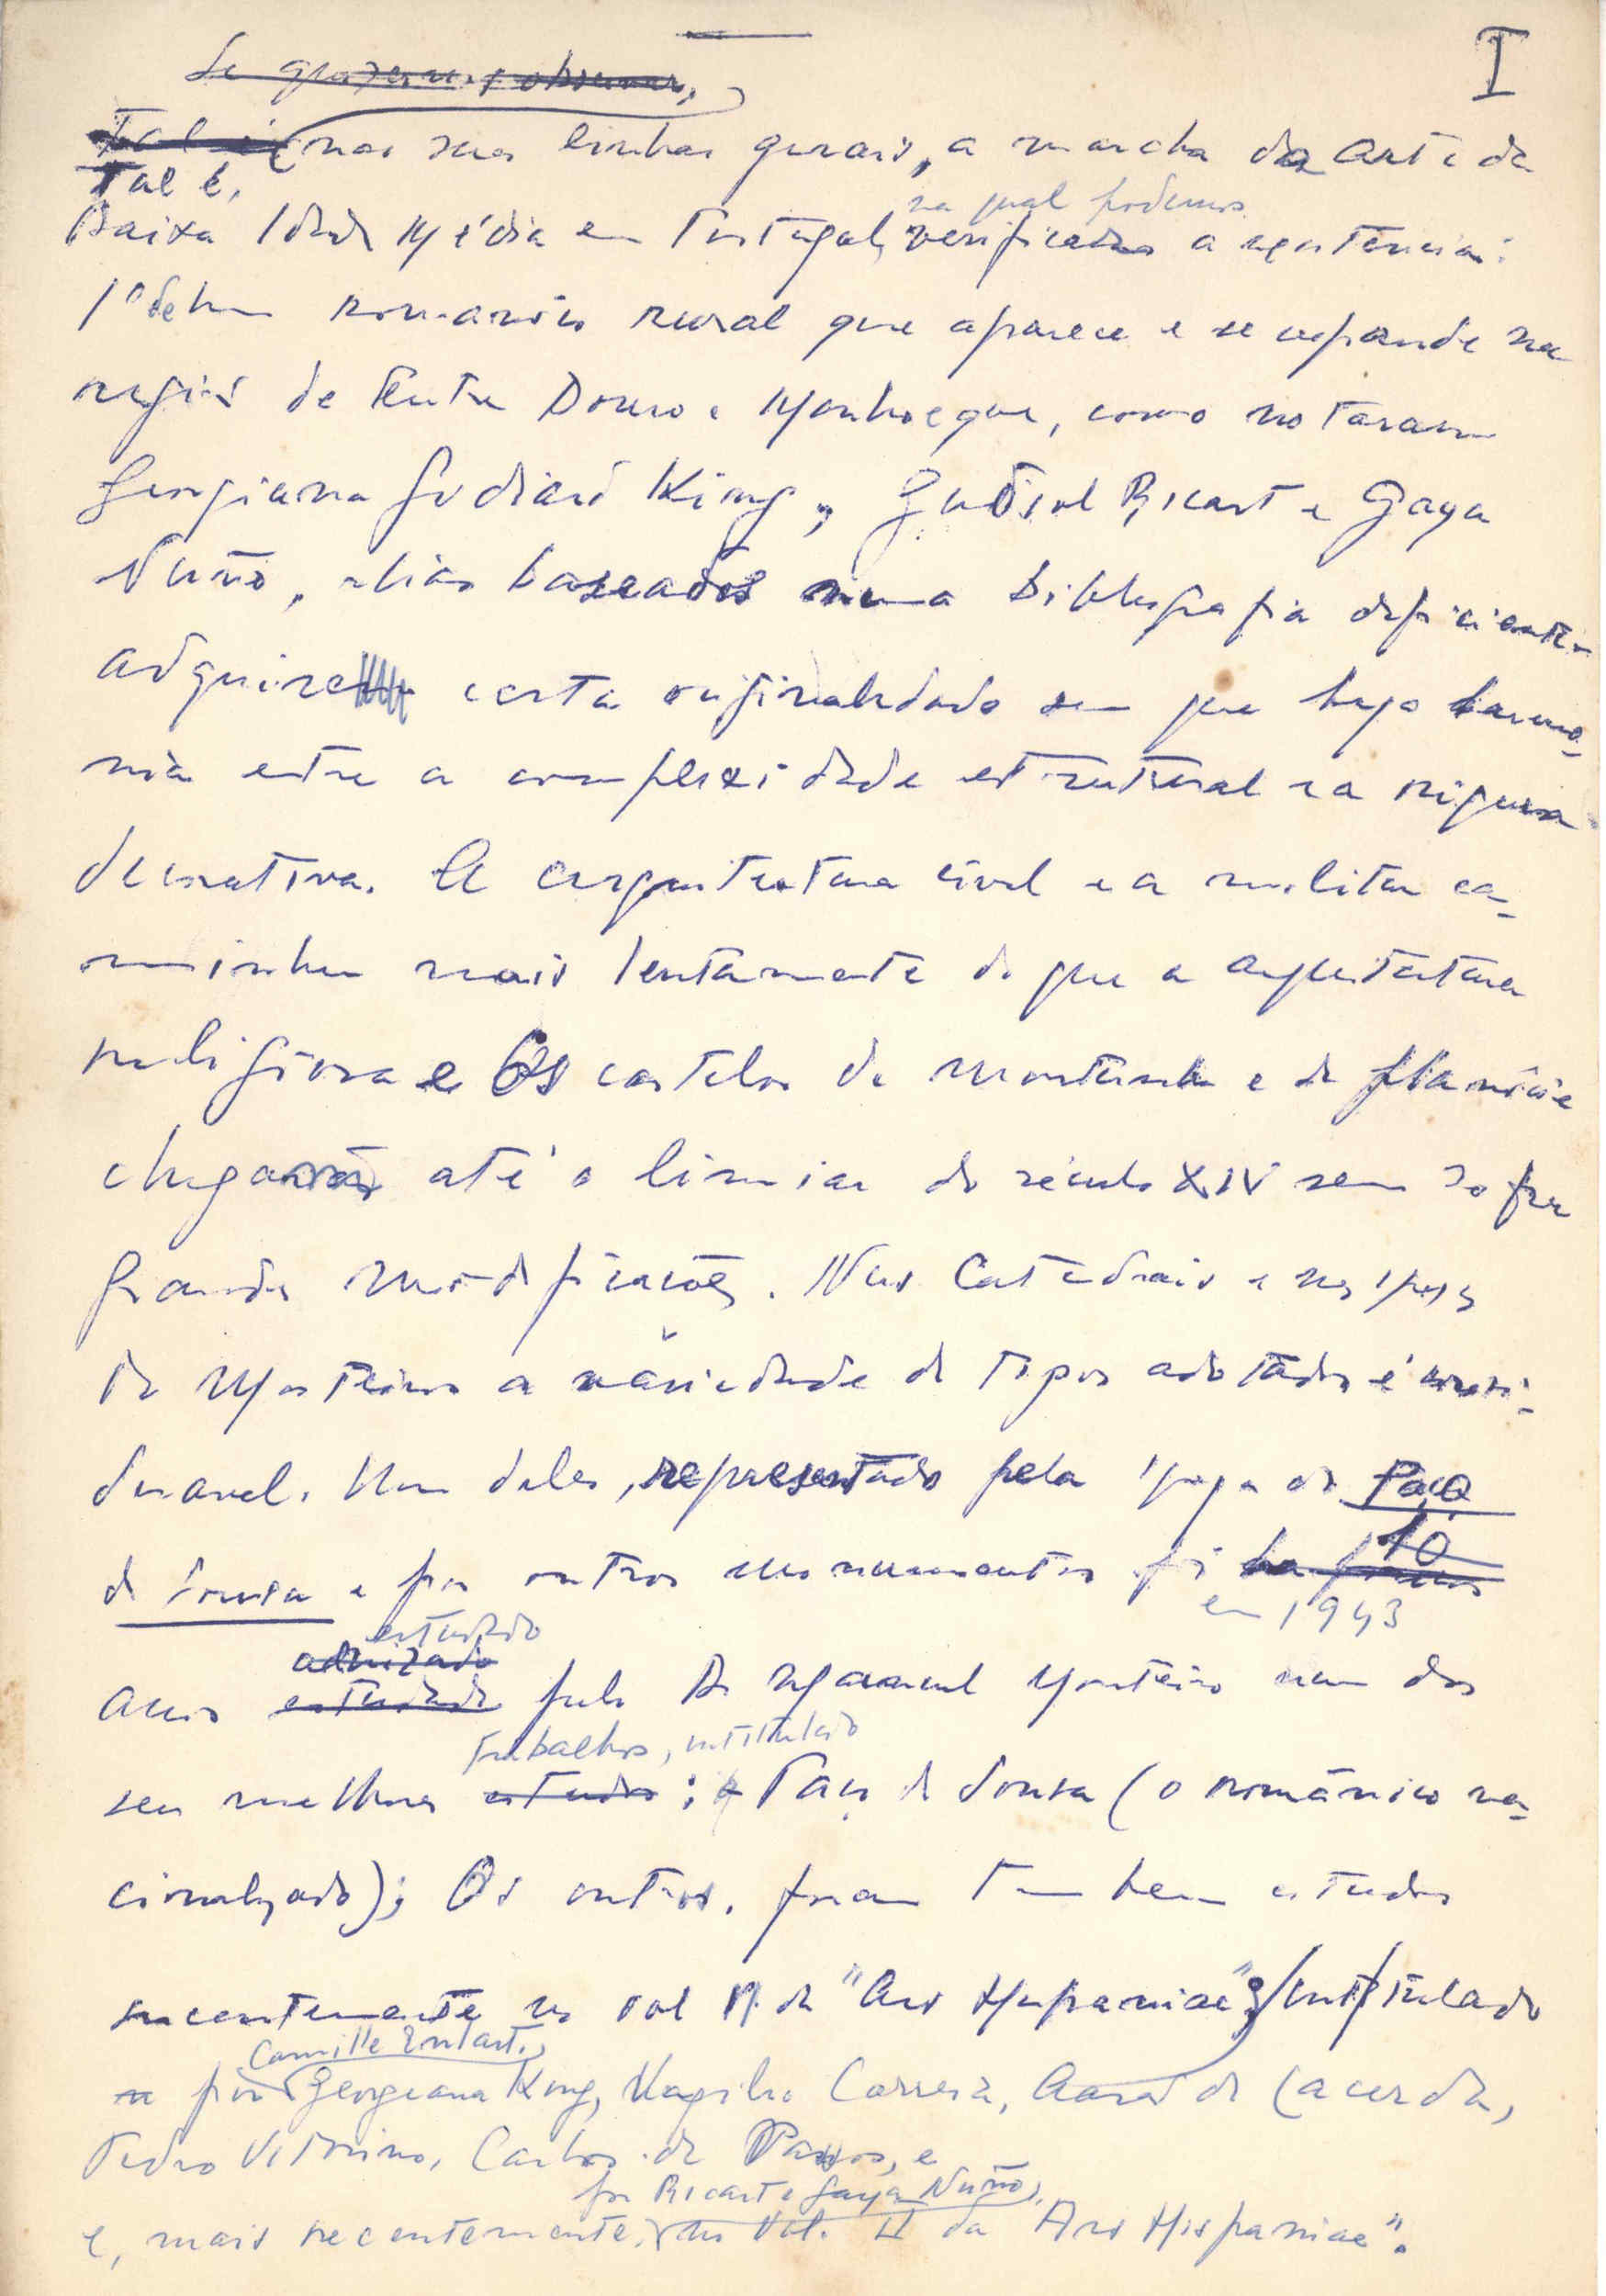 I
Se quisermos observar,
Tal é nas suas linhas gerais, a marcha da arte da
Tal é,
na qual podemos
Baixa Idade Média em Portugal, verificar a existência:
1º de um românico rural que aparece e se expande na
região de Entre Douro e Minho e que, como notaram
Georgiana Godiard King, Gudiol Ricart e Gaya
Nuño, aliás baseados numa bibliografia deficiente
adquire certa originalidade sem que haja harmo-
nia entre a complexidade estrutural e a riqueza
decorativa. A arquitectura civil e a militar ca-
minham mais lentamente do que a arquitectura
religiosa e Os castelos de montanha e de planície
chegam até o limiar do século XIV sem sofrer
grandes modificações. Nas Catedrais e nas Igrejas
de Mosteiros a variedade de tipos adotados é consi-
deravel. Um deles, representado pela Igreja de Paço
de Sousa e por outros monumentos foi há 10
em 1943
estudado
anos estudado pelo Dr Manuel Monteiro num dos
trabalhos, intitulado
seus melhores estudos: Paço de Sousa (o românico na-
cionalizado); Os outros, foram também estudados
recentemente no vol II da "Ars Hispaniae"; intitulado
Camille Enlart,
por Georgeana King, Vergilio Correia, Aarão de Lacerda,
Pedro Vitorino, Carlos de Passos, e
por Ricart e Gaya Nuño,
e, mais recentemente, no Vol. II da "Ars Hispaniae".